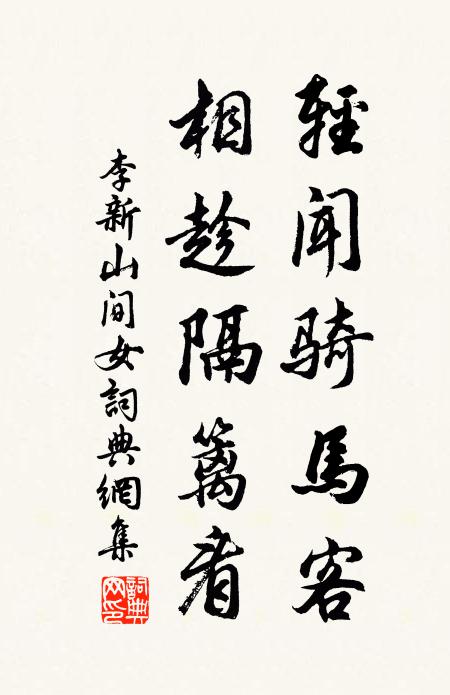 輕聞騎馬客
相趁隔籬看
李新山間女詞典網集
詞典網印